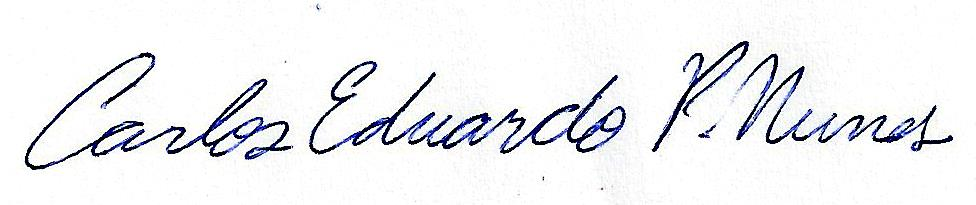 Carlos Eduardo P. Nunes